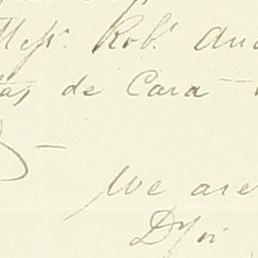 Messrs. Robt. And
tas de Cara
We are